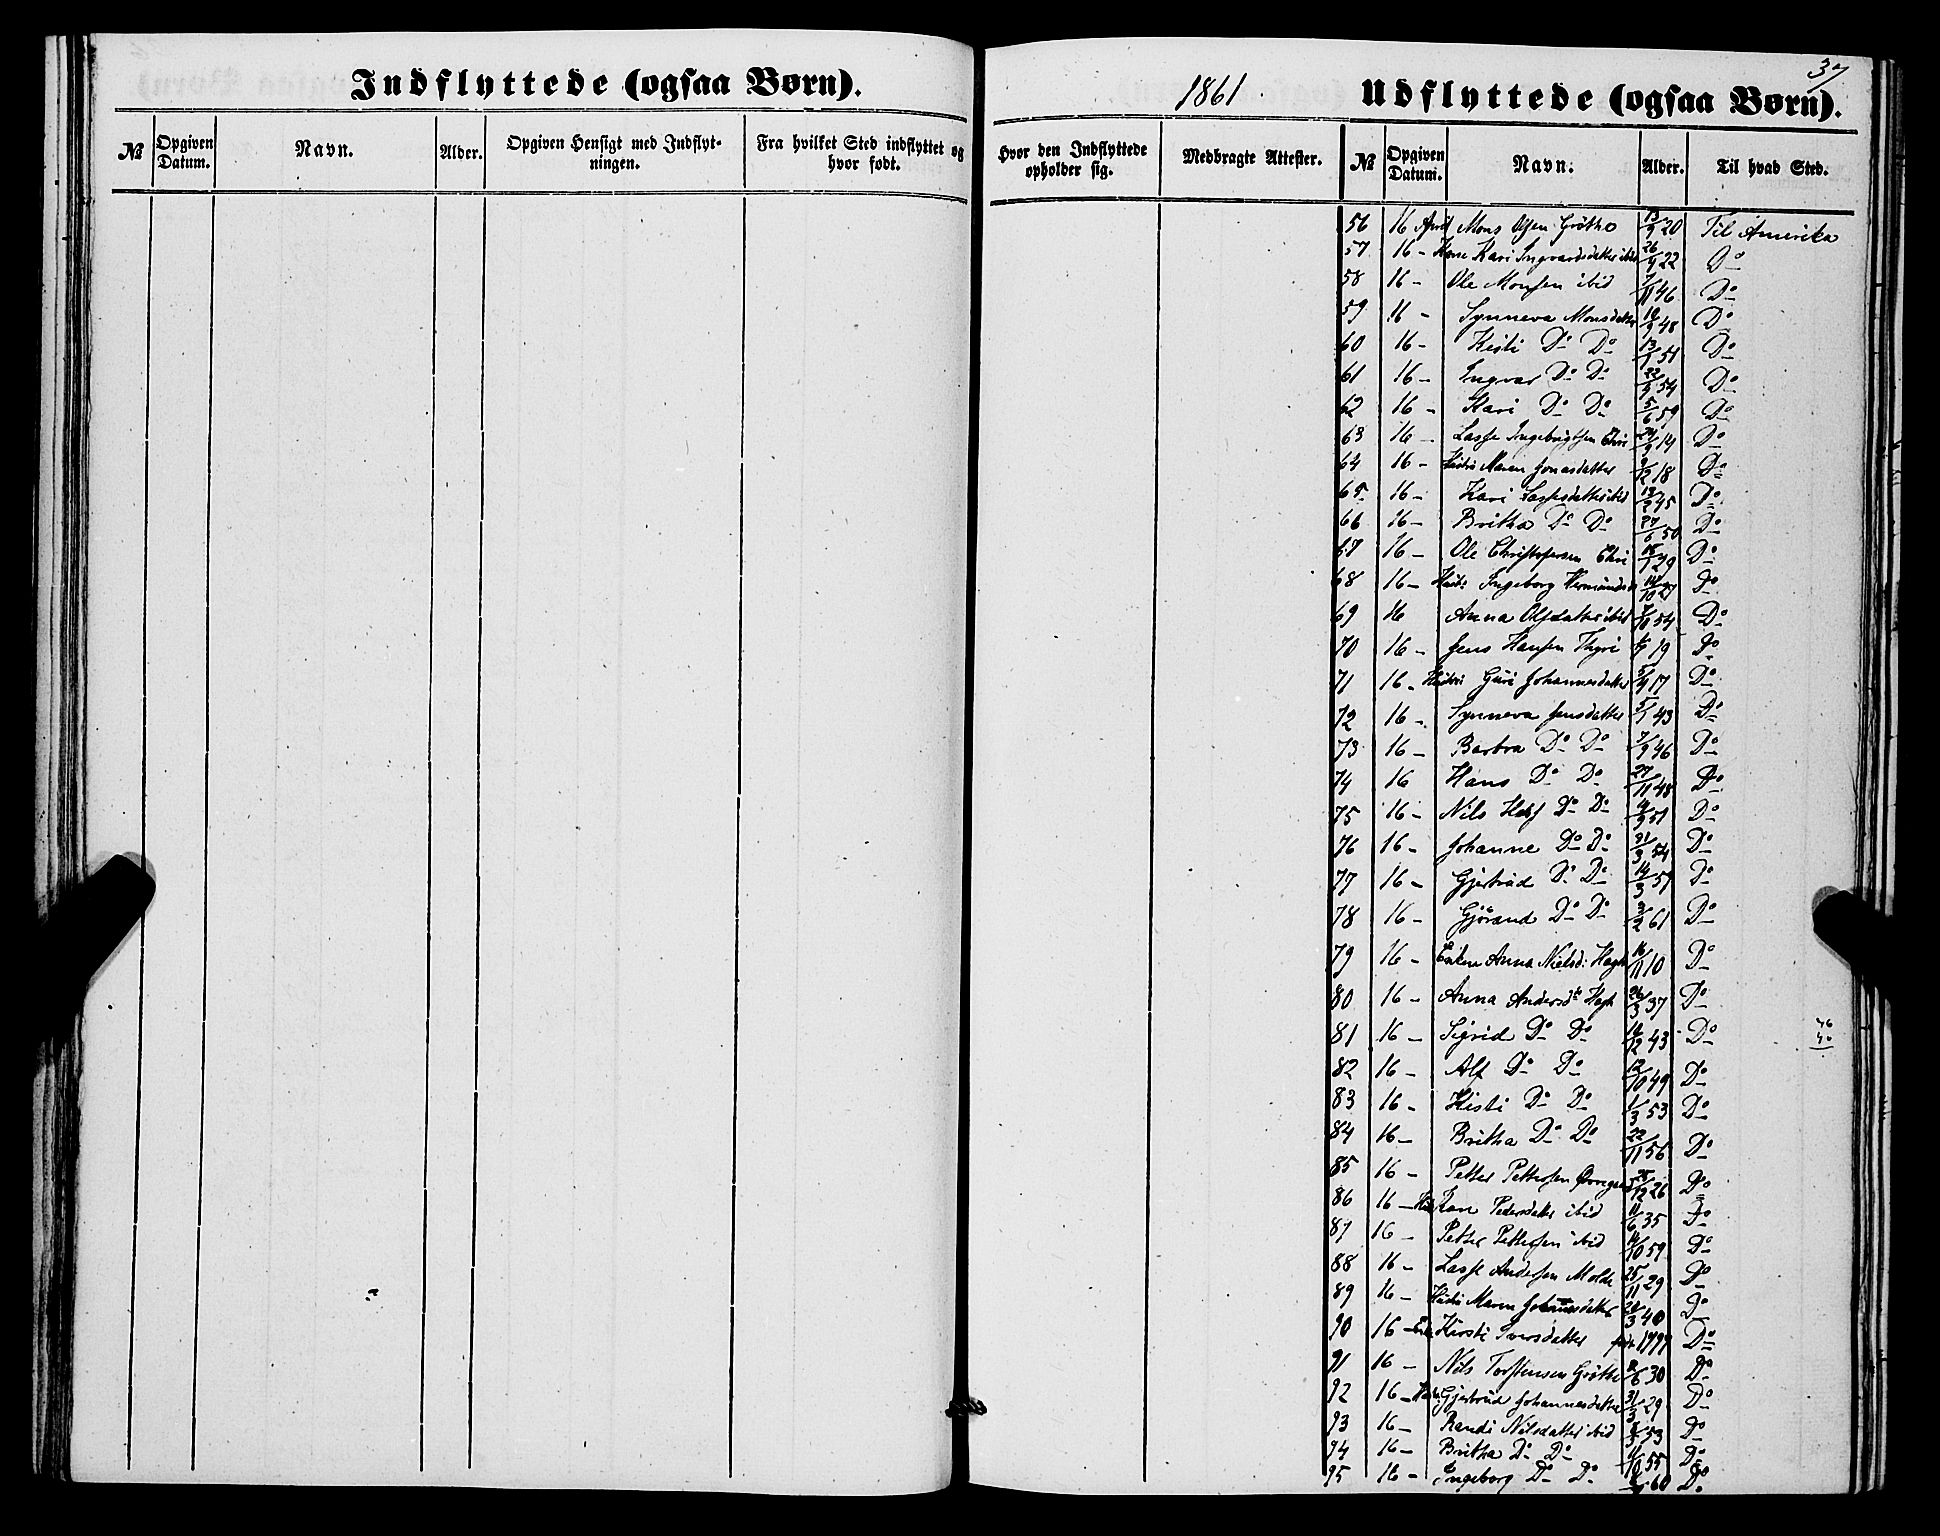 Indflyttede (ogsaa Børn).
№ Opgiven Datum. Navn. Alder. Opgiven Hensigt med Indflyt-ningen. Fra hvilket Sted indflyttet og hvor født.
37
1861 Udflyttede (ogsaa Børn).
Hvor den Indflyttede opholder sig. Medbragte Attester. № Opgiven Datum. Navn. Alder. Til hvad Sted.
56 16 April Mons Olsen Grøthe 13/9 20 Til Amerika
57 16 - Kone Kari Ingvardsdatter ibid 26/4 22 Do
58 16 - Ole Monsen ibid 7/11 46 Do
59 16 - Synneva Monsdatter 48 Do
60 16 - Kisti Do Do 13/1 51 Do
61 16 - Ingvar Do Do 54 Do
62 16 - Kari Do Do 5/6 59 Do
63 16 - Lasse Ingebrigtsen 14 Do
64 16 - Maren Jonasdatter 9/12 18 Do
65 16 - Kari Lassesdatter ibid 45 Do
66 16 - Britha Do Do 27/6 50 Do
67 16 - Ole Christophersen 29 Do
68 16 - Ingeborg 27 Do
69 16 Anna Olsdatter ibid 54 Do
70 16 - Jens Hansen Thyri 19 Do
71 16 - Guri Johannesdatter 5/4 17 Do
72 16 - Synneva Jensdatter 5/1 43 Do
73 16 - Barbra Do Do 7/9 46 Do
74 16 Hans Do Do 27/11 48 Do
75 16 - Nils Do Do 51 Do
76 16 - Johanne Do Do 54 Do
77 16 - Gjertrud Do Do 14/3 57 Do
78 16 - Gjörand Do Do 3/2 61 Do
79 16 - Enken Anna Nielsd: 16/11 10 Do
80 16 - Anna Andersdtr 26/3 37 Do
81 16 - Sigrid Do Do 43 Do
82 16 - Alf Do Do 12/10 49 Do
83 16 - Kisti Do Do 1/3 53 Do
84 16 - Britha Do Do 22/11 56 Do
85 16 - Petter Pettersen 26 Do
86 16 - Pedersdatter ibid 11/6 35 Do
87 16 - Petter Pettersen ibid 14/10 59 Do
88 16 - Lasse Andersen Molde 25/11 29 Do
89 16 - Maren Johannesdatter 40 Do
90 16 - Kirsti Iversdatter født 1797 Do
91 16 - Nils Torstensen Grøthe 30 Do
92 16 - Gjertrud Johannesdatter 31/3 29 Do
93 16 - Randi Nilsdatter ibid 53 Do
94 16 - Britha Do Do 55 Do
95 16 - Ingeborg Do Do 60 Do